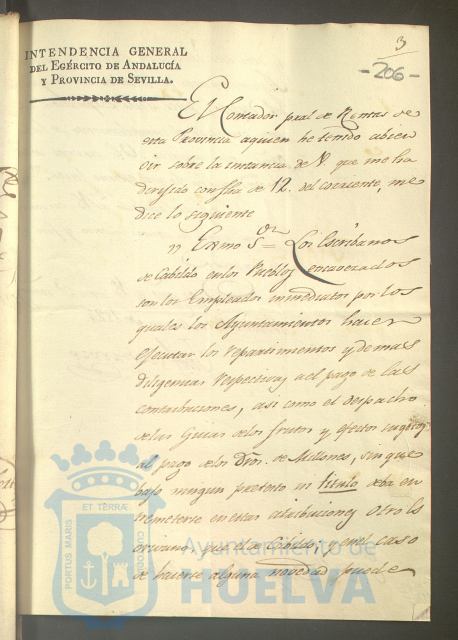 3
-206-
INTENDENCIA GENERAL
DEL EGÉRCITO DE ANDALUCÍA
Y PROVINCIA DE SEVILLA.
El Contador pral de Rentas de
esta Provincia a quien he tenido a bien
oir sobre la instancia de V. que me ha
dirigido con fha de 12. del corriente, me
dice lo siguiente
" Exmo Sor = Los Escribanos
de Cabildo en los Pueblos encavezados
son los Empleados inmediatos por los
quales los Ayuntamientos hacen
ejecutar los repartimientos y demas
diligencias respectivas a el pago de las
contribuciones, asi como el despacho
de las Guias de los frutos y efectos sugetos
al pago de los Dros. de Millones, sin que
bajo ningun pretexto ni titulo deba en
tremeterse en estas atribuciones otro Es
cribano que el de Cabildo, y en el caso
de haverse alguna novedad puede
ET TERRÆ
PORTUS MARIS
CUSTODIA
Ayuntamiento de
HUELVA